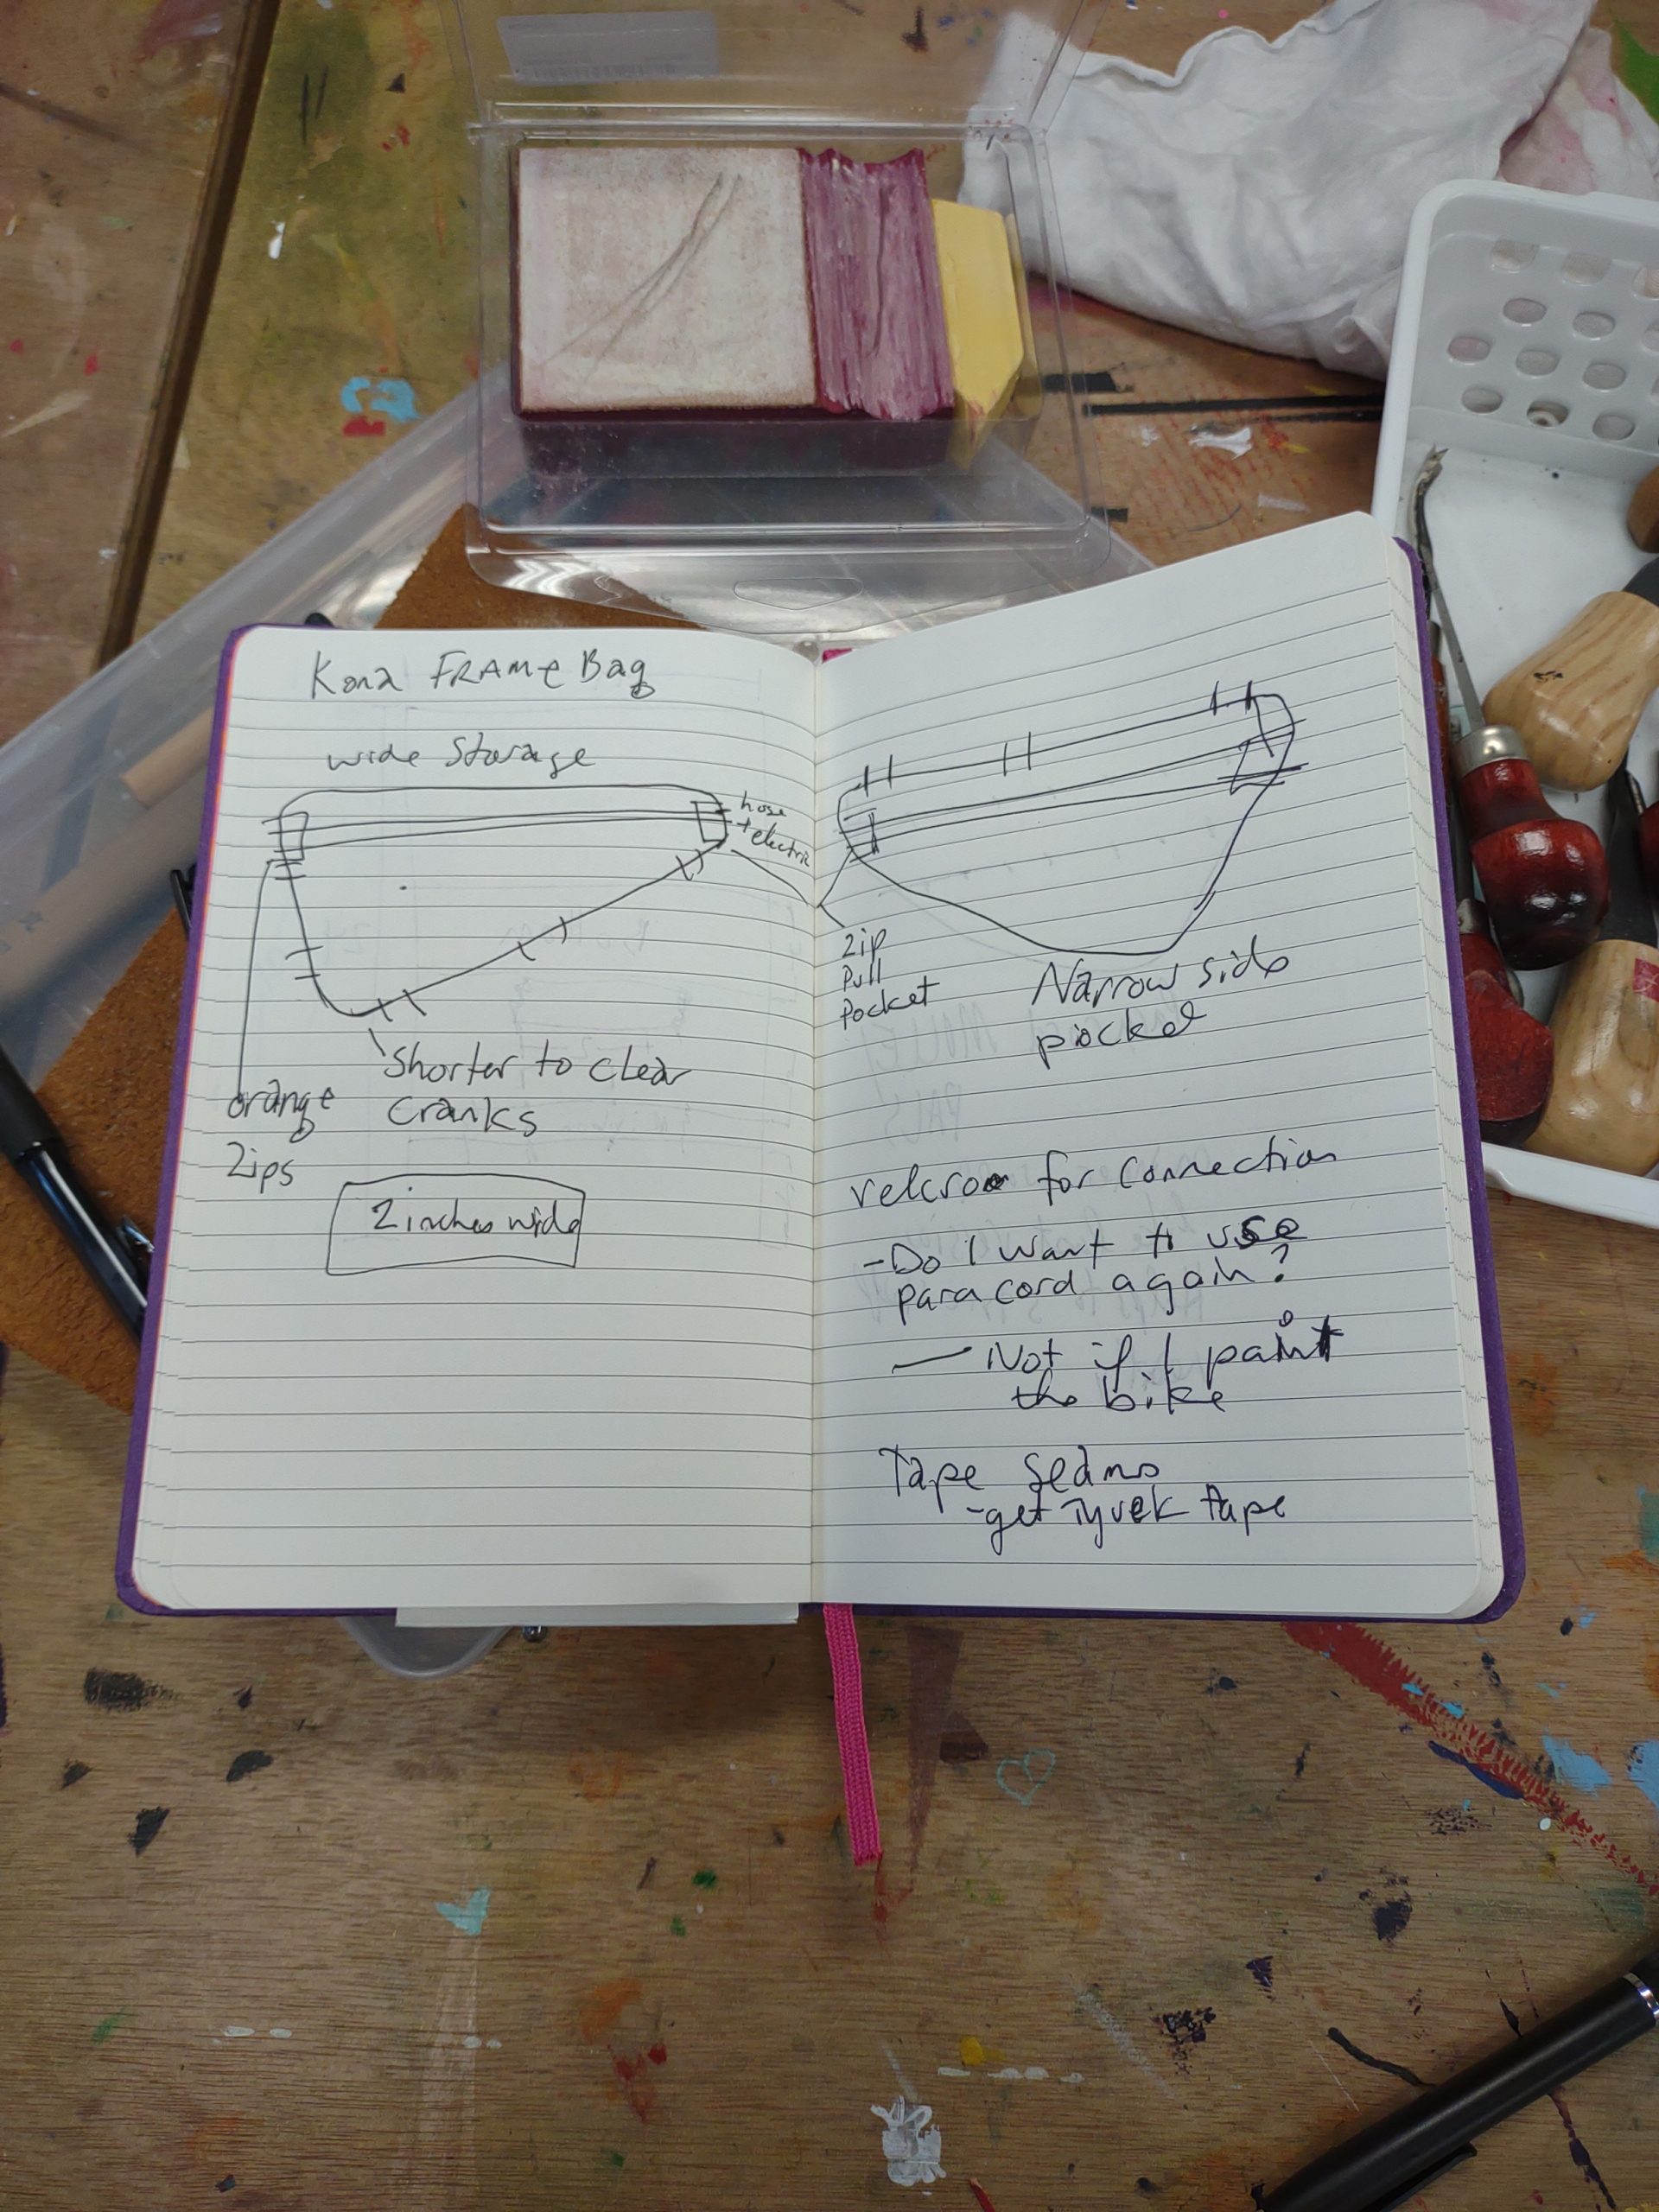 Kona FRAME Bag
wide Storage
hose
+electric
orange
zips
Shorter to clear
cranks
2 inches wide
zip
pull
pocket
Narrow side
pocket
velcro for connection
-Do I want to use
paracord again?
- Not if I paint
the bike
Tape seams
-get Tyvek tape